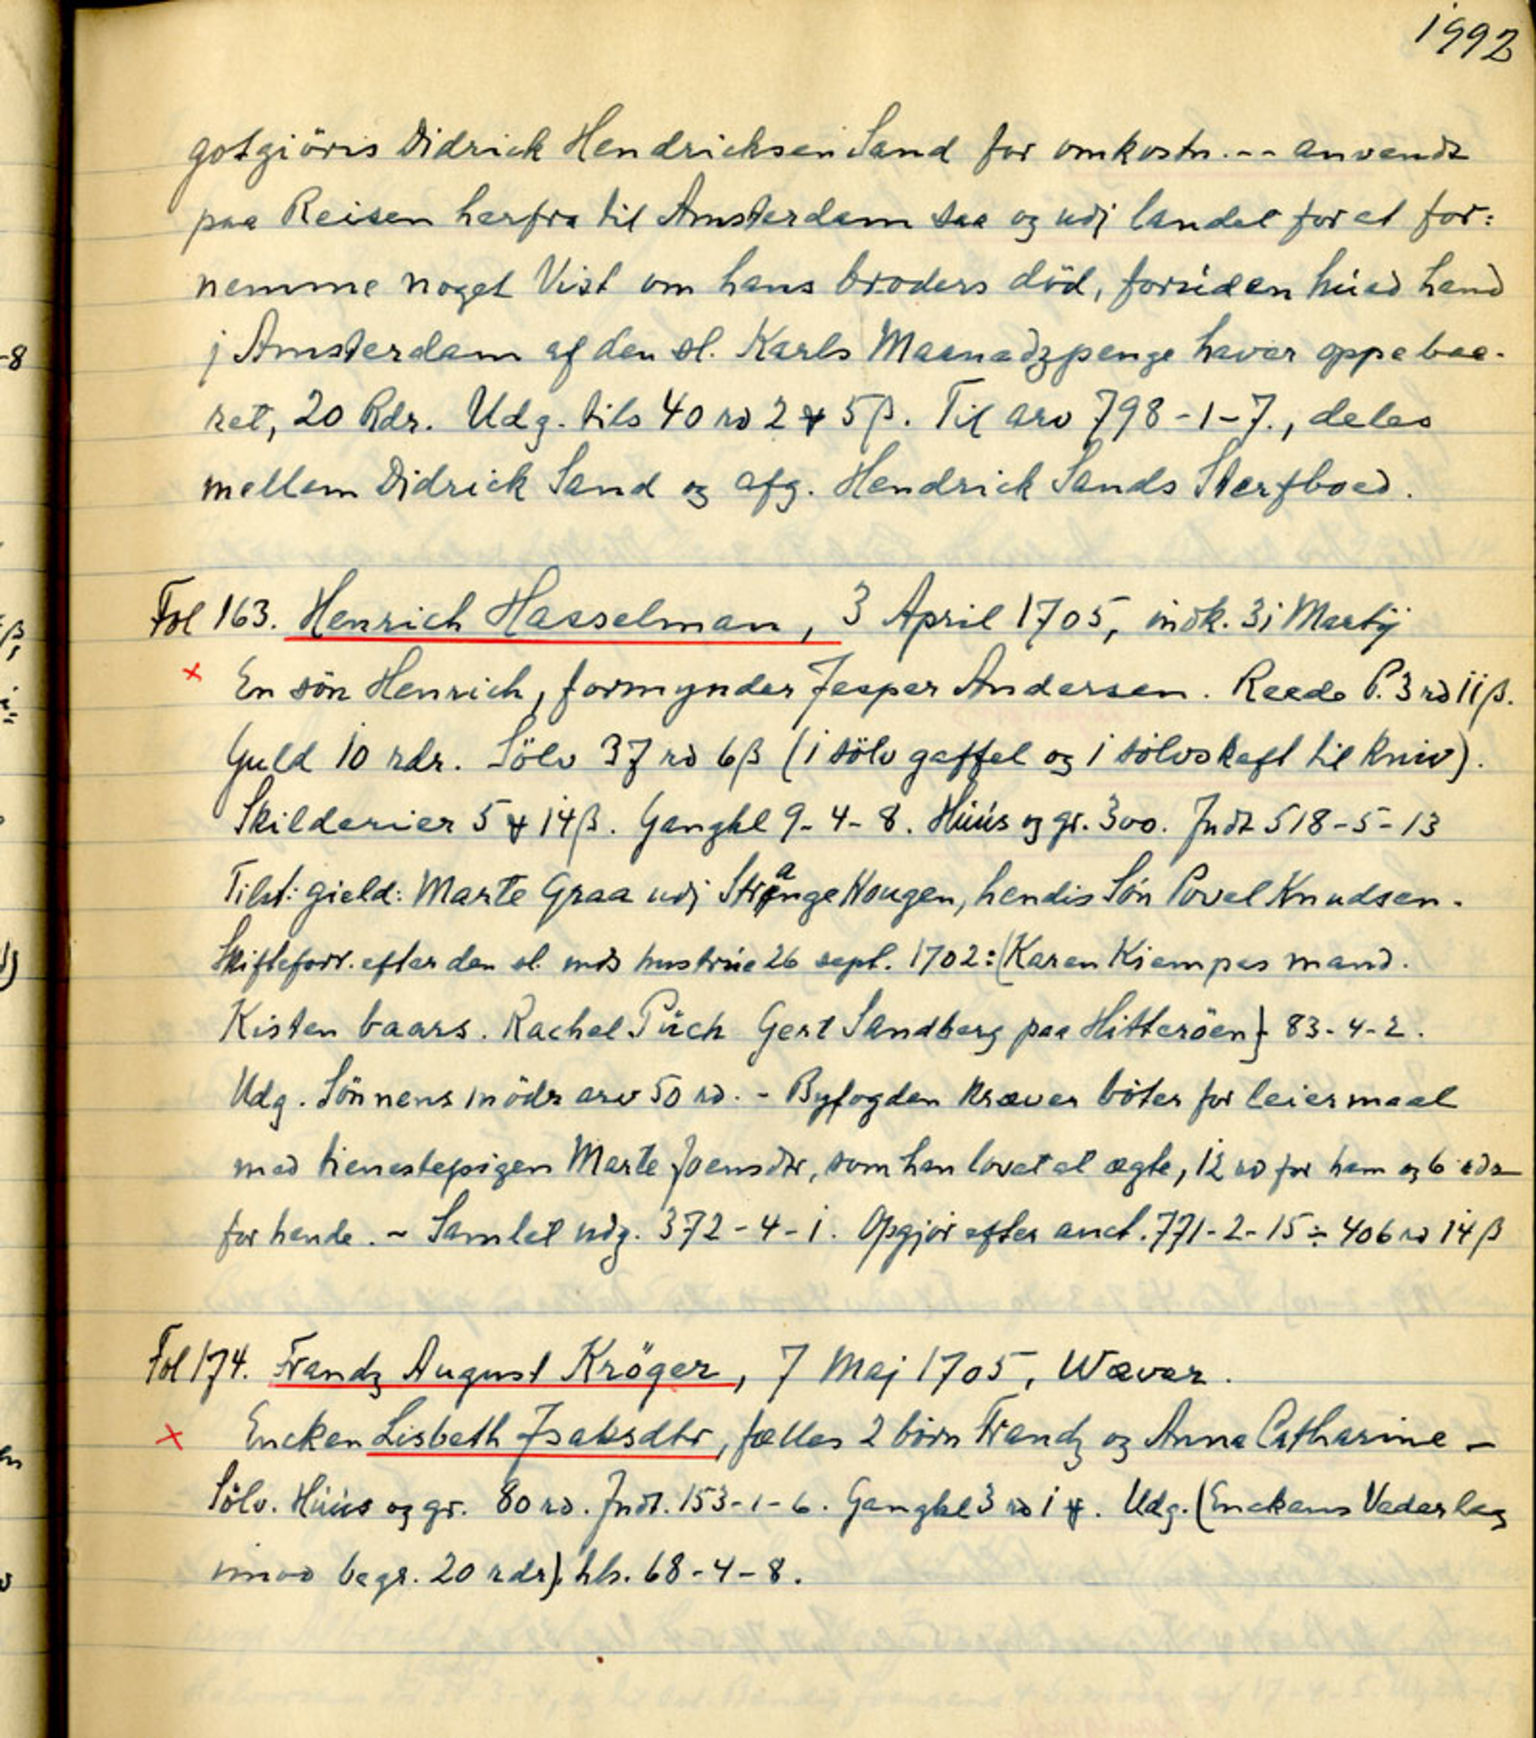 1992
gotgiöris Didrick Hendricksen Sand for omkostn. -- anvendt
paa Reisen herfra til Amsterdam saa og udj landet for at for:
nemme noget Vist om hans broders död, foruden húad hand
j Amsterdam af den sl. Karls Maanadzpenge haver oppebaa-
ret, 20 Rdr. Udg. tils 40 rd 2 ꝟ 5 β. Til arv 798-1-7., deles
mellem Didrick Sand og afg. Hendrick Sands Sterfboed.
Fol 163. Henrich Hasselman, 3 April 1705, indk. 31 Martij
En sön Henrich, formynder Jesper Andersen. Reede P. 3 rd 11 β.
Guld 10 rdr. Sölv 37 rd 6 β (1 sölv gaffel og 1 sölvskaft til kniv).
Skilderier 5 ꝟ 14 β. Gangkl 9-4-8. Húús og gr. 300. Indt 518-5-13
Tilst: gield: Marte Graa udj Strange Hougen, hendis Sön Povel Knudsen.
Skifteforr. efter den sl. mds hustrúe 26 sept. 1702: (Karen Kiempes mand.
Kisten baars. Rachel Púch Gert Sandberg paa Hitteröen} 83-4-2.
Udg. Sönnens mödr arv 50 rd. - Byfogden kræver böter for leiermaal
med tienestepigen Marte Joensdtr, som han lovet at ægte, 12 rd for ham og 6 rdr
for hende. - Samlet udg. 372-4-1. Opgjör efter auct. 771-2-15 ÷ 406 rd 14 β
Fol 174. Frandz August Kröger, 7 Maj 1705, Wæver.
Encken Lisbeth Isaksdtr, fælles 2 börn Frandz og Anna Catharine -
Sölv. Húús og gr. 80 rd. Indt. 153-1-6. Gangkl 3 rd 1 ꝟ. Udg. (Enckens Vederlag
imod begr. 20 rdr), tils. 68-4-8.